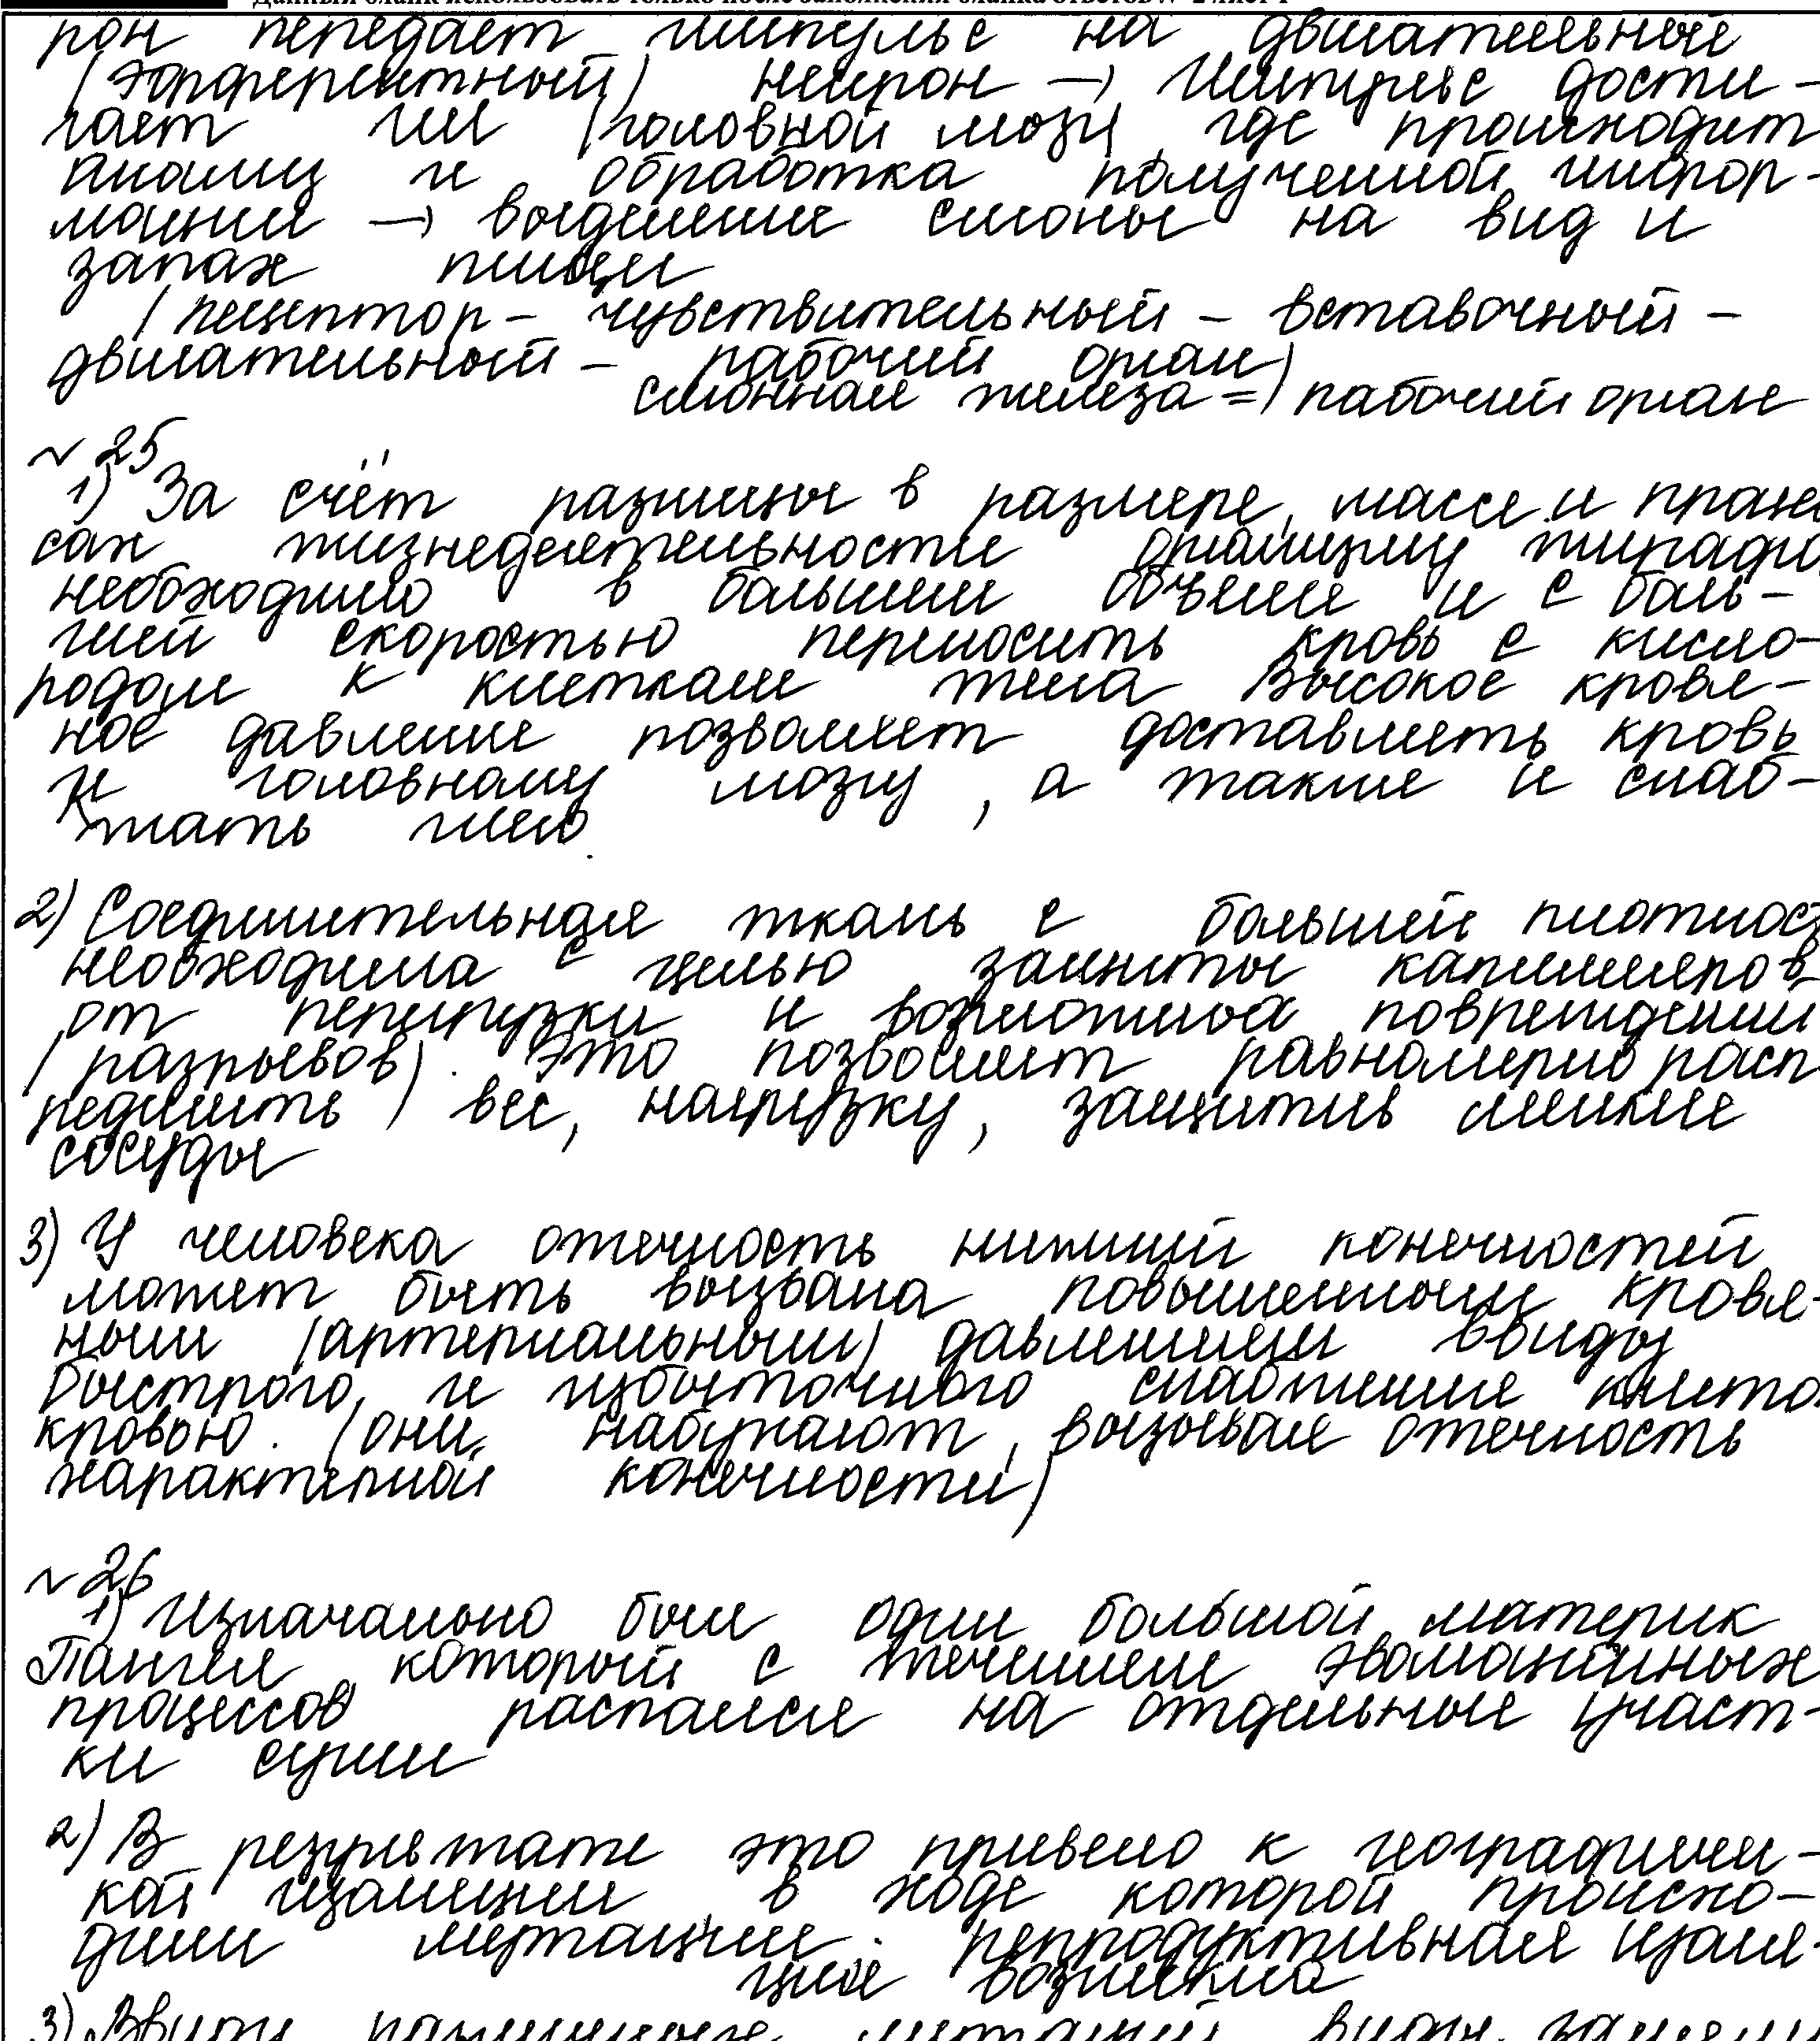 Данный бланк использовать только после заполнения бланка ответов № 2 лист 1
рон передает импульс на двигательный
(эфферентный) нейрон → Импульс дости-
гает ГМ (головной мозг), где происходит
анализ и обработка полученной инфор-
мации → выделение слюны на вид и
запах пищи
(рецептор - чувствительный - вставочный -
двигательный - рабочий орган)
слюнная железа => рабочий орган
№ 25
1) За счёт разницы в размере, массе и процес
сах жизнедеятельности организму жирафа
необходимо в большем объеме и с боль-
шей скоростью переносить кровь с кисло-
родом к клеткам тела Высокое кровя-
ное давление позволяет доставлять кровь
к головному мозгу, а также и снаб-
жать шею.
2) Соединительная ткань с большей плотност
необходима с целью защиты капилляров
от перегрузки и возможных повреждений
(разрывов). Это позволяет равномерно расп
ределить) вес, нагрузку, защитив мелкие
сосуды
3) У человека отечность нижний конечностей
может быть вызвана повышенным кровя-
ным (артериальным) давлением ввиду
быстрого и избыточного снабжения клето
кровью. (они набухают, вызывая отечность
характерной конечности)
№ 26
1) Изначально был один большой материк
Пангея, который с течением эволюционных
процессов распался на отдельные участ-
ки суши
2) В результате это привело к географичес-
кой изоляции в ходе которой происхо-
дили мутации. репродуктивная изоля-
ция возникла
3) Ввиду различных мутаций виды